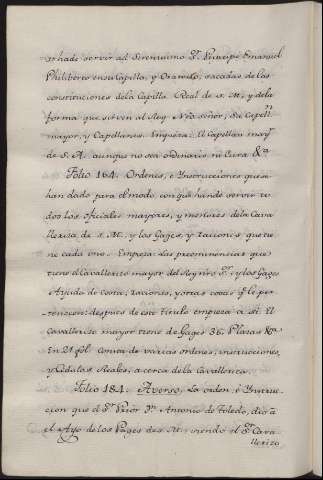 se ha de servir al Serenissimo Sr. Principe Emanuel
Philiberto en su Capilla, y Oratorio, sacadas de las
constituciones de la Capilla Real de S. M., y de la
forma que sirven al Rey Nro señor, su Capelln
mayor, y Capellanes. Empieza: El Capellan mayr
de S. A. aunque no sea ordinario, ni Cura &a.
Folio 164. Ordenes, e Instrucciones que se
han dado para el modo con que han de servir to
dos los oficiales mayores, y menores de la Cava
lleriza de S. M. y los Gages, y raciones que tie
ne cada uno. Empieza: las preeminencias que
tiene el Cavallerizo mayor del Rey nro Sr. y los Gages
Ayuda de Costa, raciones, y otras cosas q. le per-
tenecen: despues de este titulo empieza a si: El
Cavallerizo mayor tiene de Gages 36. Plazas &a
En 21. fol. consta de varias ordenes, instrucciones,
y Cedulas Reales, a cerca de la Cavalleriza.
Folio 184. Averso. La orden, e Instruc-
cion que el Sr. Prior Dn. Antonio de Toledo, dio a
el Ayo de los Pages de S. M. siendo el Sr. Cava-
llerizo